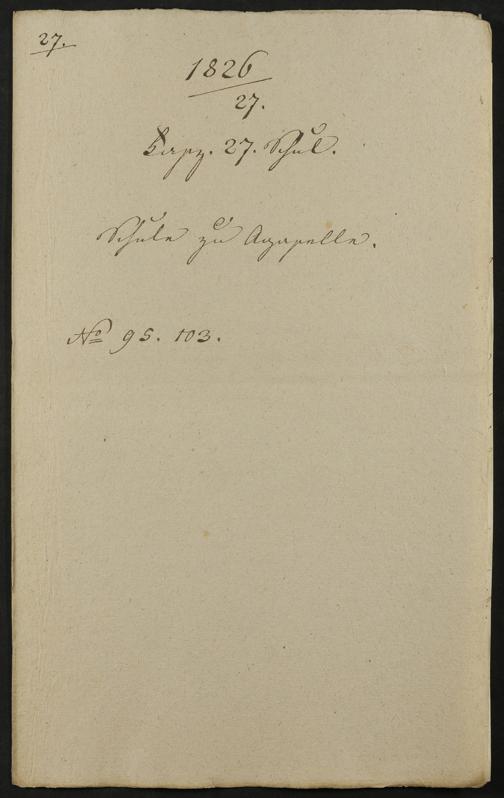 27.
1826
27.
Kapz. 27. Schul.
Schule zu Agapelle.
No 95. 103.